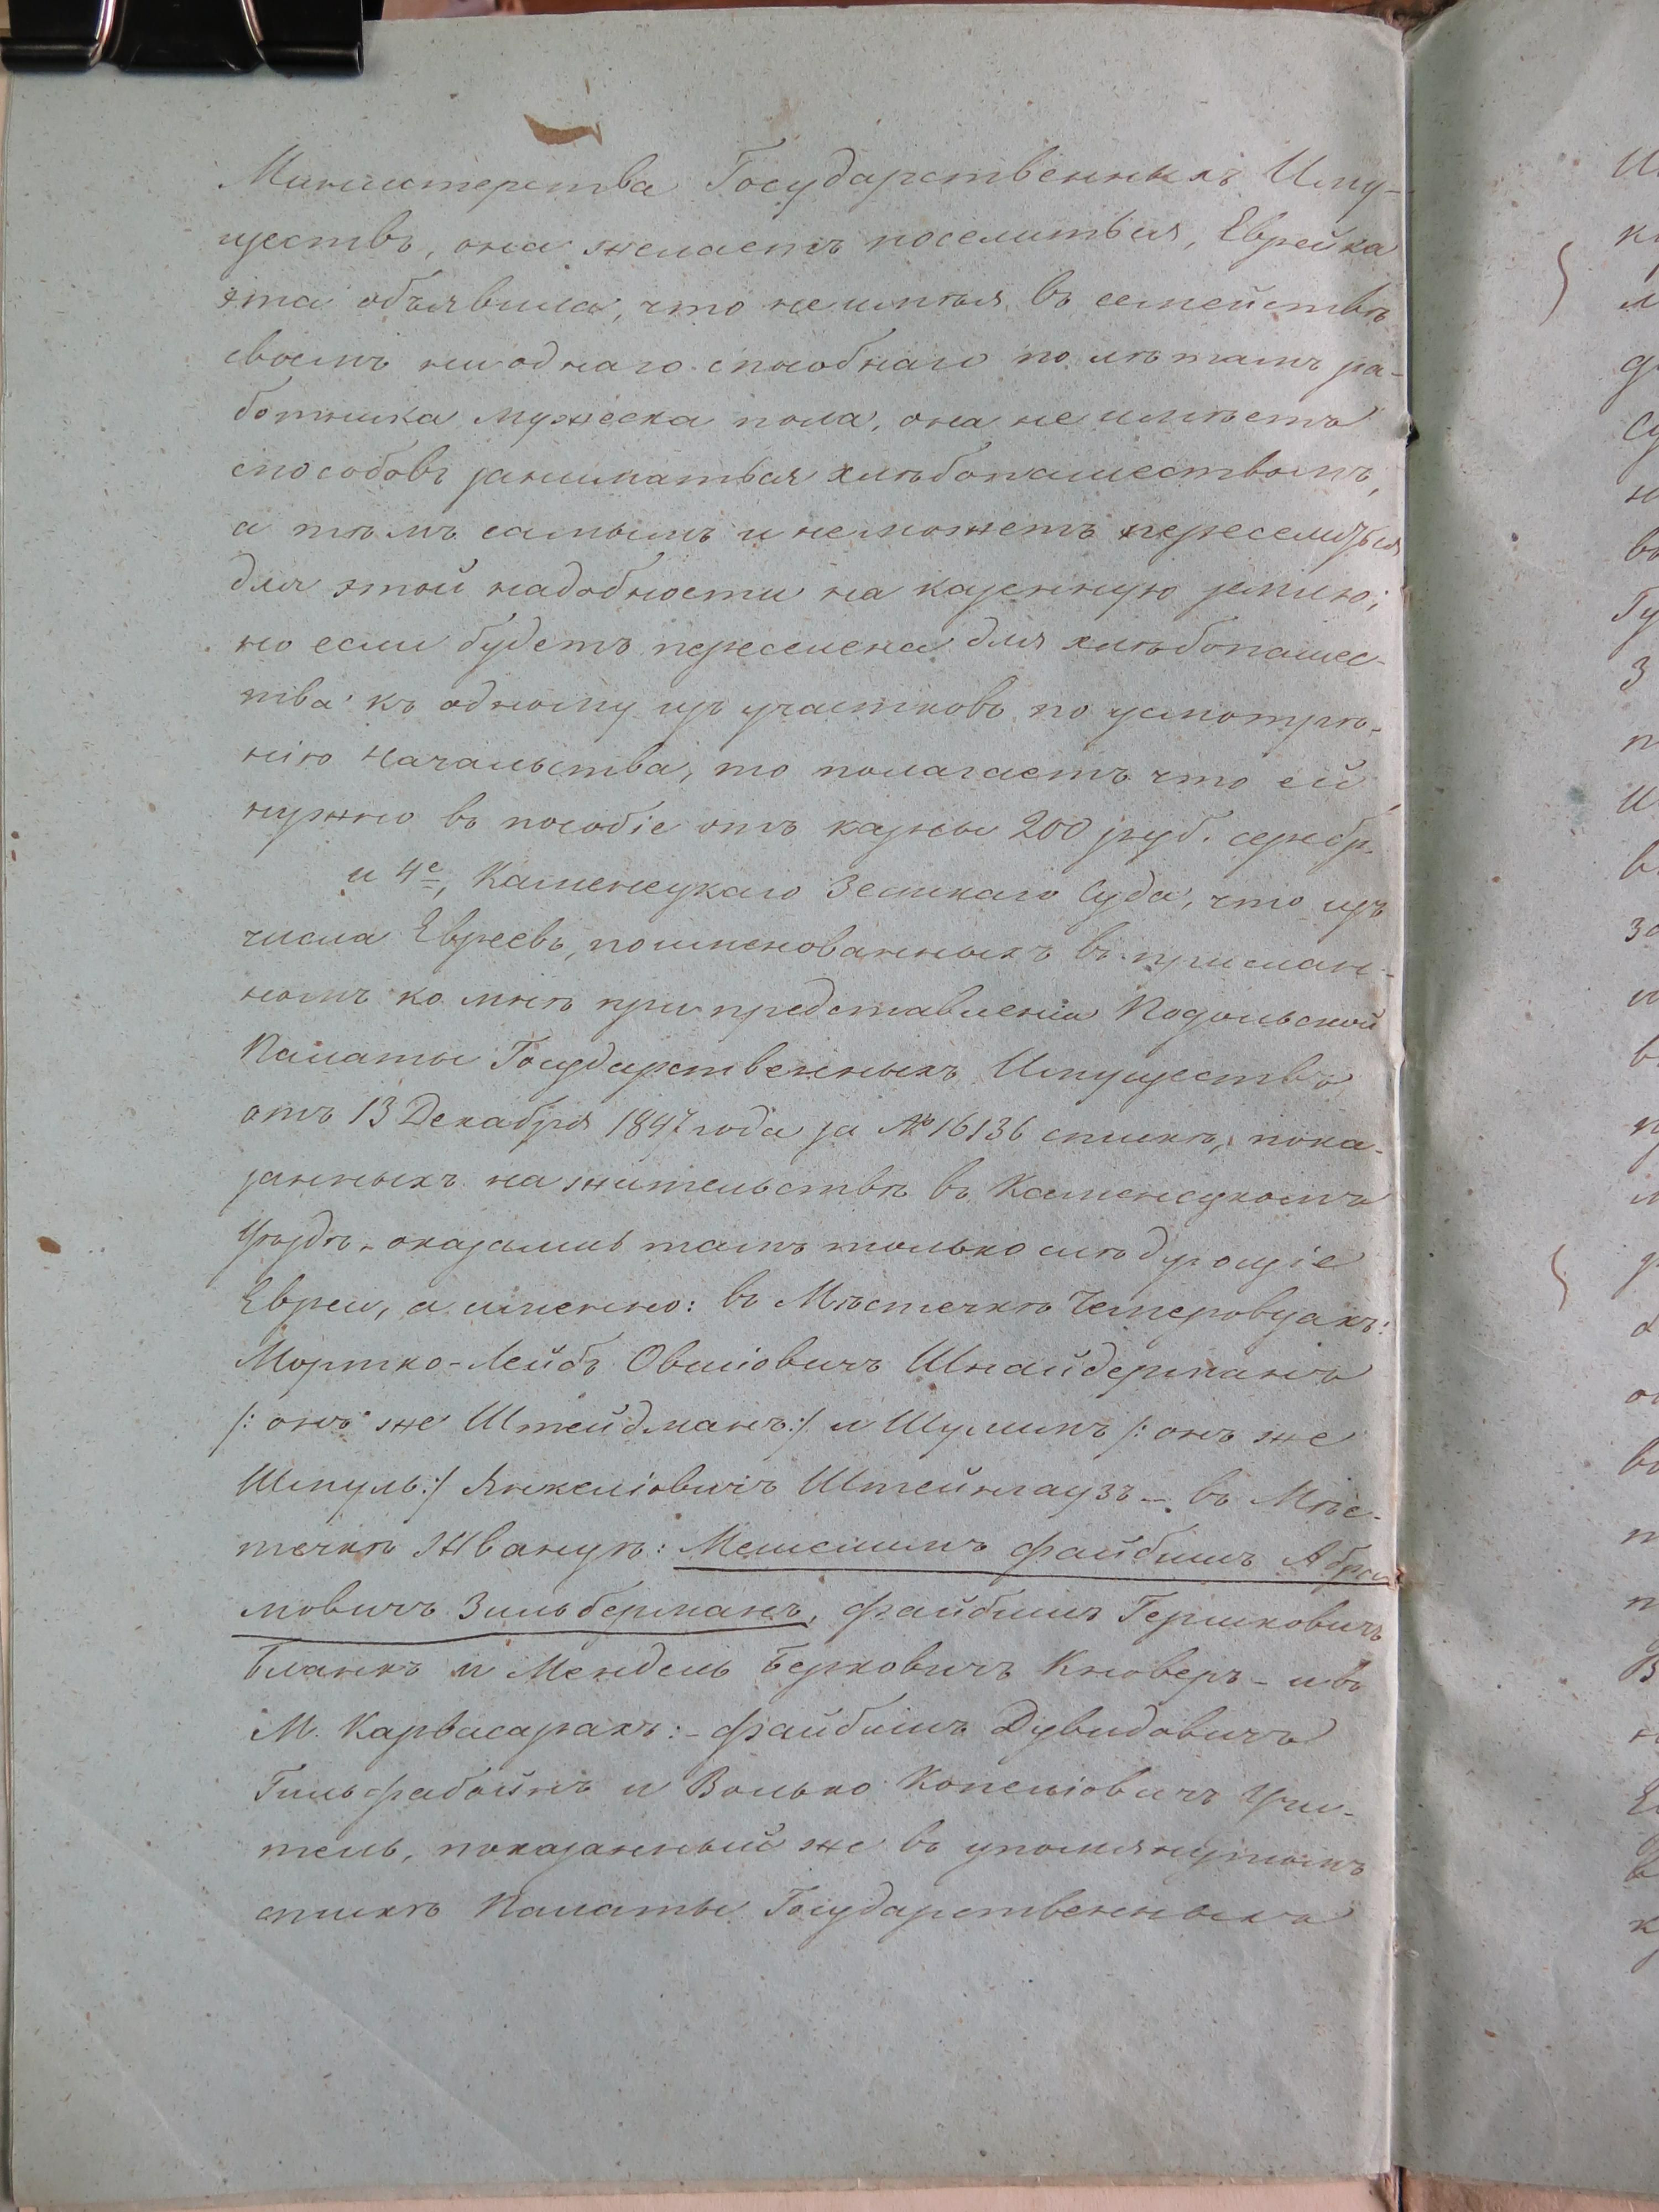 Министерства Государственныхъ Иму-
ществъ, она желаетъ поселиться, Еврейка
эта объявила, что неимѣя въ семействѣ
своемъ ни однаго способнаго по лѣтамъ ра-
ботника мужеска пола, она не имѣетъ
способовъ заниматься хлѣбопашествомъ,
а тѣмъ самымъ и неможетъ переселиться
для этой надобности на казенную землю;
но если будетъ переселена для хлѣбопашес-
тва къ одному изъ участковъ по усмотрѣ-
нію Начальства, то полагаетъ что ей
нужно въ пособіе отъ казны 200 руб. серебр.
и 4е, Каменецкаго Земскаго Суда, что изъ
числа Евреевъ, поименованныхъ въ прислан-
номъ ко мнѣ при представленіи Подольской
Палаты Государственныхъ Имуществъ
отъ 13 Декабря 1847 года за № 16136 спискѣ, пока-
занныхъ на жительствѣ въ Каменецкомъ
Уѣздѣ, оказались тамъ только слѣдующіе
Евреи, а именно: въ Мѣстечкѣ Чемеровцахъ:
Мортко-Лейбъ Овшіовичъ Шнайдерманъ
/: онъ же Штейдманъ:/ и Шулимъ /: онъ же
Шмуль:/ Янкеліовичъ Штейнгаузъ - въ Мѣс-
течкѣ Жванцѣ: Мешелимъ Файбишъ Абра
мовичъ Зильберманъ, Файбишъ Гершковичъ
Бланкъ и Мендель Берковичъ Кноверъ - и въ
М. Карвасарахъ: - Файбишъ Дувидовичъ
и Волько Копеліовичъ Учи-
тель, показанный же въ упомянутомъ
спискѣ Палаты Государственныхъ